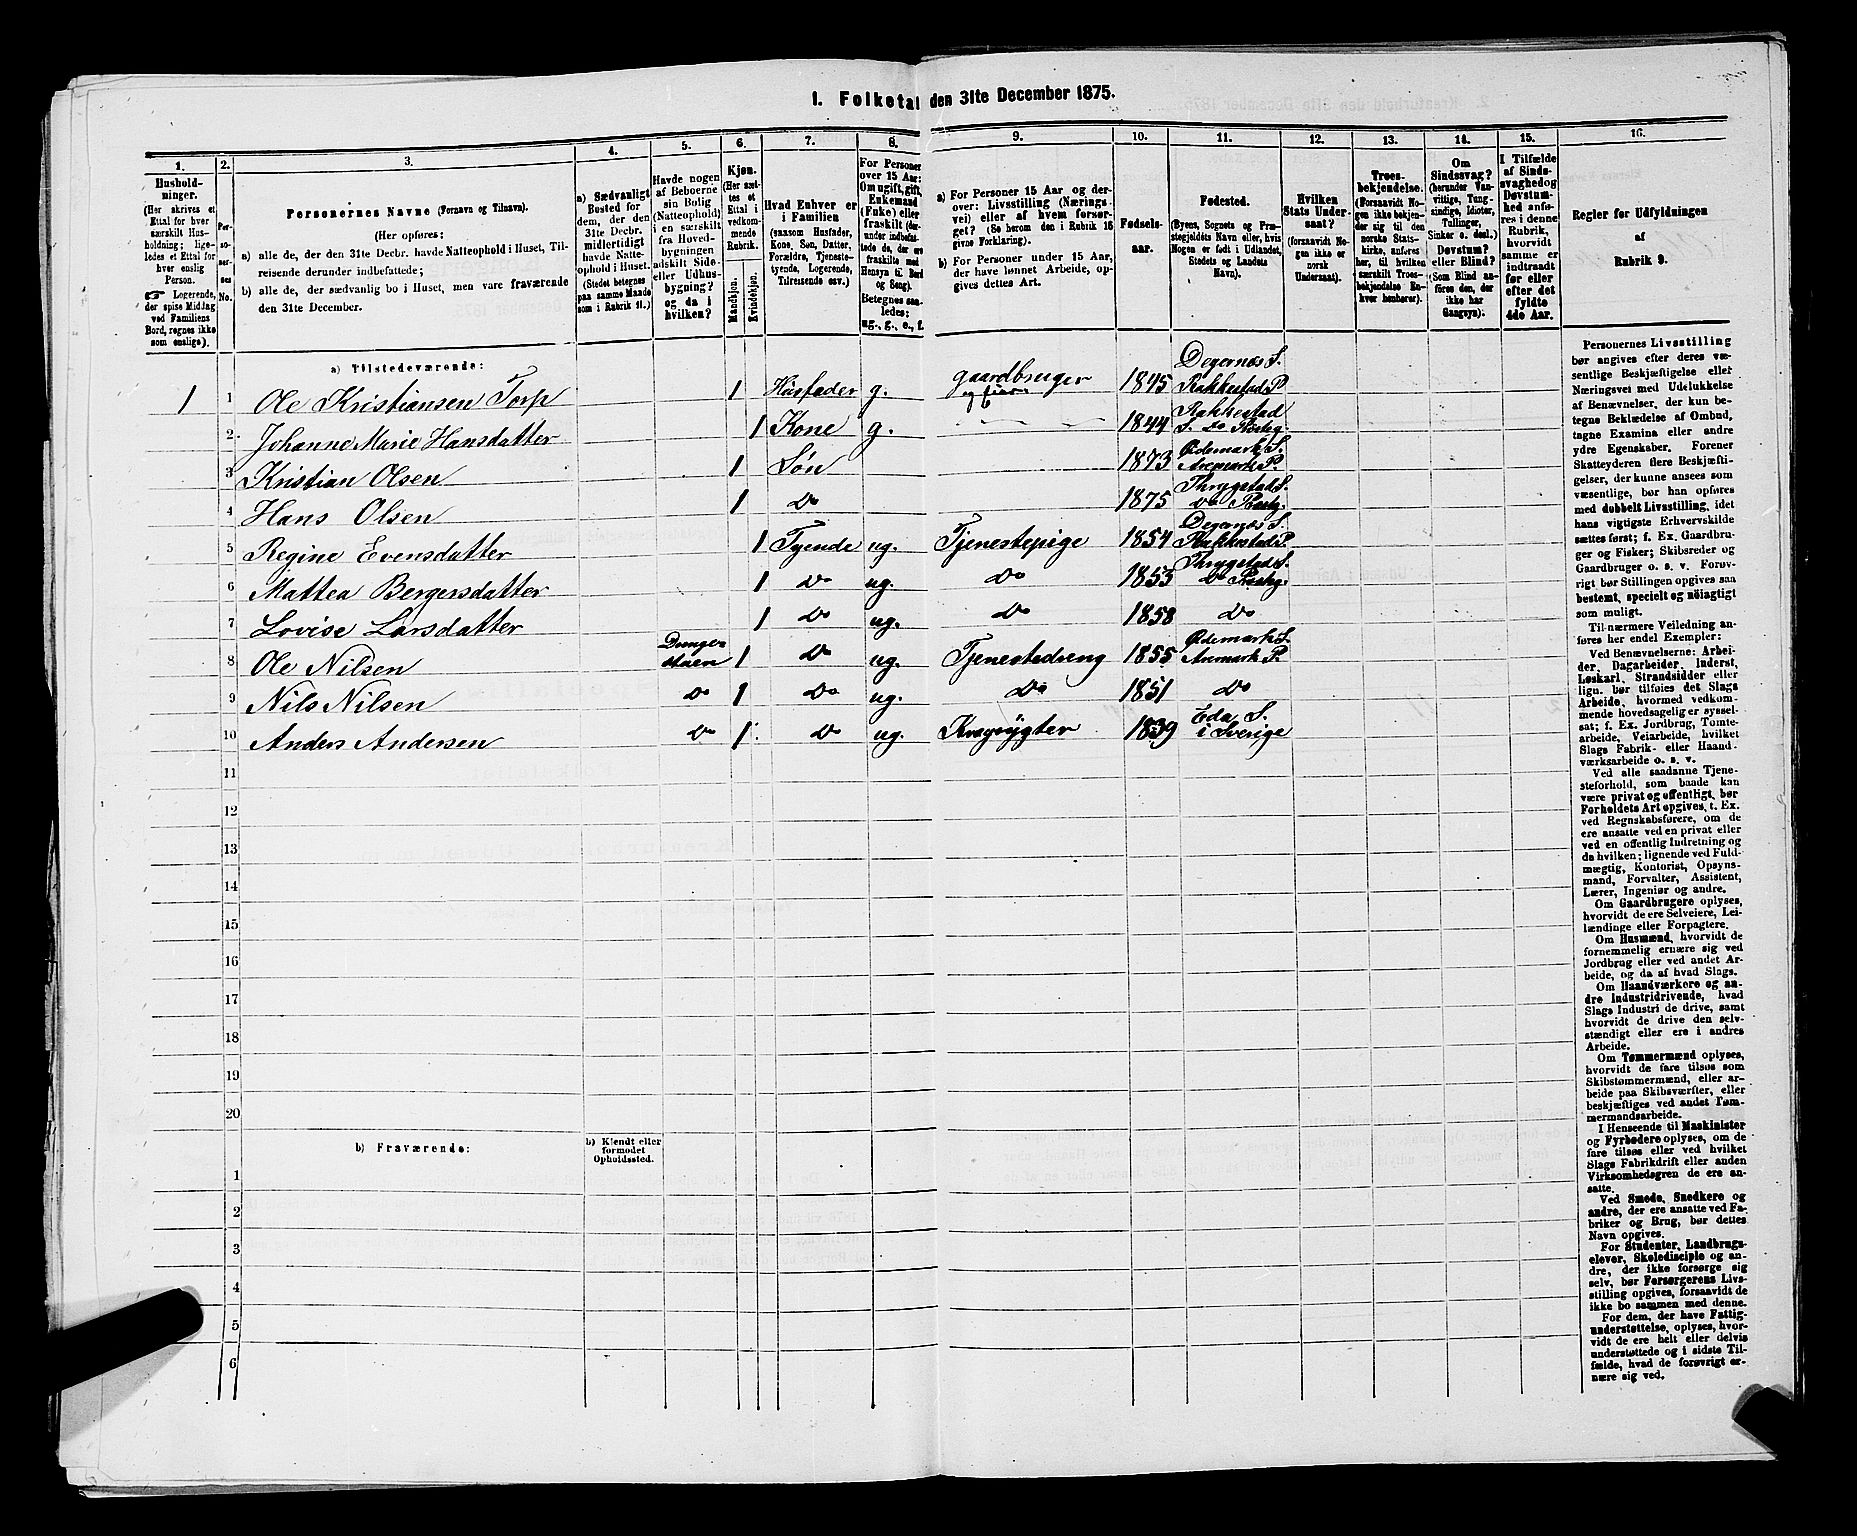 I. Folketal den 31te December 1875.
1. 2. 3. 4. 5. 6. 7. 8. 9. 10. 11. 12. 13. 14. 15. 16.
Hushold-
ninger.
(Her skrives et
Ettal for hver
særskilt Hus-
holdning; lige-
ledes et Ettal for
hver enslig
Person.
☛ Logerende,
der spise Middag
ved Familiens
Bord, regnes ikke
som enslige).
Per-
so-
ner-
nes
No.
Personernes Navne (Fornavn og Tilnavn).
(Her opføres:
a) alle de, der den 31te Decbr. havde Natteophold i Huset, Til-
reisende derunder indbefattede;
b) alle de, der sædvanlig bo i Huset, men vare fraværende
den 31te December.
a) Sædvanligt
Bosted for
dem, der den
31te Decbr.
midlertidigt
havde Natte-
ophold i Huset.
(Stedet betegnes
paa samme Maade
som i Rubrik 11.)
Havde nogen
af Beboerne
sin Bolig
(Natteophold)
i en særskilt
fra Hoved-
bygningen
adskilt Side-
eller Udhus-
bygning?
og da i
hvilken?
Kjøn.
(Her sæt-
tes et
Ettal i
vedkom-
mende
Rubrik.
Mandkjøn.
Kvindekjøn.
Hvad Enhver er
i Familien
(saasom Husfader,
Kone, Søn, Datter,
Forældre, Tjeneste-
tyende, Logerende,
Tilreisende osv.)
For Personer
over 15 Aar:
Om ugift, gift,
Enkemand
(Enke) eller
fraskilt (der-
under indbefat-
tede de, der ere
fraskilte med
Hensyn til Bord
og Seng).
Betegnes saa-
ledes:
ug., g., e., f.
a) For Personer 15 Aar og der-
over: Livsstilling (Nærings-
vei) eller af hvem forsør-
get? (Se herom den i Rubrik 16
givne Forklaring).
b) For Personer under 15 Aar,
der have lønnet Arbeide, op-
gives dettes Art.
Fødsels-
aar.
Fødested.
(Byens, Sognets og Præ-
stegjeldets Navn eller, hvis
Nogen er født i Udlandet,
Stedets og Landets
Navn).
Hvilken
Stats Under-
saat?
(forsaavidt No-
gen ikke er
norsk
Undersaat).
Troes-
bekjendelse.
(Forsaavidt No-
gen ikke bekjen-
der sig til den
norske Stats-
kirke, anføres
her, til hvilken
særskilt Troes-
bekjendelse En-
hver henhører).
Om
Sindssvag?
(herunder Van-
vittige, Tung-
sindige, Idioter,
Tullinger,
Sinker o. desl.).
Døvstum?
eller Blind?
(Som Blind an-
føres den, der
ikke har
Gangsyn).
I Tilfælde
af Sinds-
svaghed og
Døvstum-
hed anfø-
res i denne
Rubrik,
hvorvidt
samme er
indtraadt
før eller
efter det
fyldte
4de Aar.
Regler for Udfyldningen
af
Rubrik 9.
a) Tilstedeværende:
1 1 Ole Kristiansen Torp 1 Husfader g. gaardbruger 1845 Degernes S. Rakkestad P.
2 Johanne Marie Hansdatter 1 Kone g. 1844 Rakkestad S. Do Præstg.
3 Kristian Olsen 1 Søn 1873 Ødemark S. Aremark P.
4 Hans Olsen 1 Do 1875 Thrygstad S. Do Præstg.
5 Regine Evensdatter 1 Tyende ug. Tjenestepige 1854 Degernes S. Rakkestad P.
6 Mattea Bergersdatter 1 Do ug. Do 1853 Thrygstad S. Do Præstg.
7 Lovise Larsdatter 1 Do ug. Do 1858 Do
8 Ole Nilsen 1 Do ug. Tjenestedreng 1855 Ødemark S. Aremark P.
9 Nils Nilsen Do 1 Do ug. Do 1851 Do
10 Anders Andersen Do 1 Do ug. Kreaturrøgter 1839 Eda S. i Sverige
11
12
13
14
15
16
17
18
19
20
b) Fraværende:
b) Kjendt eller
formodet
Opholdssted.
1
2
3
4
5
6
Personernes Livsstilling
bør angives efter deres væ-
sentlige Beskjæftigelse eller
Næringsvei med Udelukkelse
af Benævnelser, der kun be-
tegne Beklædelse af Ombud,
tagne Examina eller andre
ydre Egenskaber. Forener
Skatteyderen flere Beskjæfti-
gelser, der kunne ansees som
væsentlige, bør han opføres
med dobbelt Livsstilling, idet
hans vigtigste Erhvervskilde
sættes først; f. Ex. Gaardbru-
ger og Fisker; Skibsreder og
Gaardbruger o. s. v. Forøv-
rigt bør Stillingen opgives saa
bestemt, specielt og nöiagtigt
som muligt.
Til nærmere Veiledning an-
føres her endel Exempler:
Ved Benævnelserne: Arbei-
der, Dagarbeider, Inderst,
Løskarl, Strandsidder eller
lign. bør tilføies det Slags
Arbeide, hvormed vedkom-
mende hovedsagelig er syssel-
sat; f. Ex. Jordbrug, Tomte-
arbeide, Veiarbeide, hvilket
Slags Fabrik- eller Haand-
værksarbeide o. s. v.
Ved alle saadanne Tjene-
steforhold, som baade kan
være privat og offentligt, bør
Forholdets Art opgives, t. Ex.
ved Regnskabsførere, om de
ere ansatte ved en privat eller
ved en offentlig Indretning og
da hvilken; lignende ved Fuld-
mægtig, Kontorist, Opsyns-
mand, Forvalter, Assistent,
Lærer, Ingeniør og andre.
Om Gaardbrugere oplyses,
hvorvidt de ere Selveiere, Lei-
lændinge eller Forpagtere.
Om Husmænd, hvorvidt de
fornemmelig ernære sig ved
Jordbrug eller ved andet Ar-
beide, og da af hvad Slags.
Om Haandværkere og an-
dre Industridrivende, hvad
Slags Industri de drive, samt
hvorvidt de drive den selv-
stændigt eller ere i andres
Arbeide.
Om Tømmermænd oplyses,
hvorvidt de fare tilsøs som
Skibstømmermænd, eller ar-
beide paa Skibsværfter, eller
beskjæftiges ved andet Tøm-
mermandsarbeide.
I Henseende til Maskinister
og Fyrbødere oplyses, om de
fare tilsøs eller ved hvilket
Slags Fabrikdrift eller anden
Virksomhedsgren de ere an-
satte.
Ved Smede, Snedkere og
andre, der ere ansatte ved Fa-
briker og Brug, bør dettes
Navn opgives.
For Studenter, Landbrugs-
elever, Skoledisciple og an-
dre, der ikke forsørge sig
selv, bør Forsørgerens Livs-
stilling opgives, forsaavidt de
ikke bo sammen med denne.
For dem, der have Fattig-
understøttelse, oplyses, hvor-
vidt de ere helt eller delvis
understøttede og i sidste Til-
fælde, hvad de forøvrigt er-
nære sig ved.